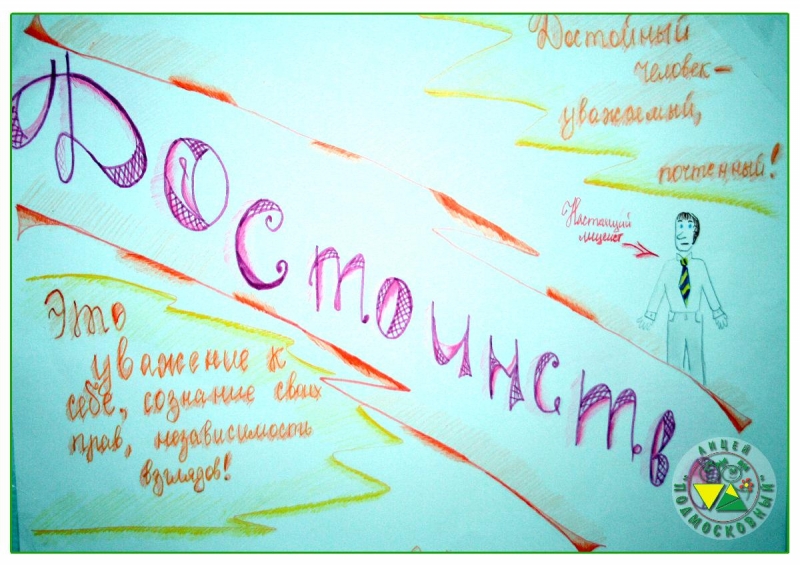 Достойный
человек -
уважаемый,
почтенный!
Достоинство
Настоящий
лицеист
Это
уважение к
себе, сознание своих
прав, независимость
взглядов!
ЛИЦЕЙ
"ПОДМОСКОВНЫЙ"